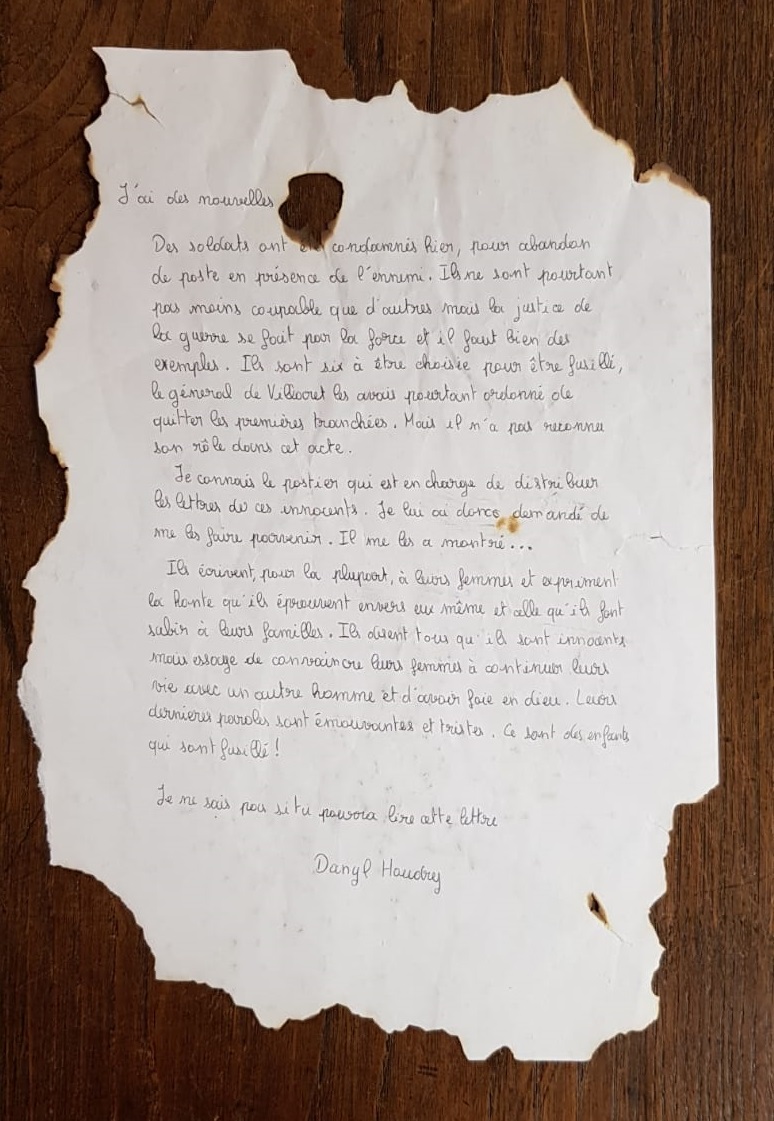 J'ai des nouvelles
Des soldats ont condamnés hier, pour abandon
de poste en présence de l'ennemi. Ils ne sont pourtant
pas moins coupable que d'autres mais la justice de
la guerre se fait par la force et il faut bien des
exemples. Ils sont six à être choisie pour être fusillé,
le général de Villaret les avais pourtant ordonné de
quitter les premières tranchées. Mais il n'a pas reconnu
son rôle dans cet acte.
Je connais le postier qui est en charge de distribuer
les lettres de ces innocents. Je lui ai donc demandé de
me les faire parvenir. Il me les a montré...
Ils écrivent, pour la plupart, à leurs femmes et expriment
la honte qu'ils éprouvent envers eux même et celle qu'ils font
subir à leurs familles. Ils disent tous qu'ils sont innocents
mais essaye de convaincre leurs femmes à continuer leurs
vie avec un autre homme et d'avoir foie en dieu. Leurs
dernieres paroles sont émouvantes et tristes. Ce sont des enfants
qui sont fusillé !
Je ne sais pas si tu pourra lire cette lettre
Danyl